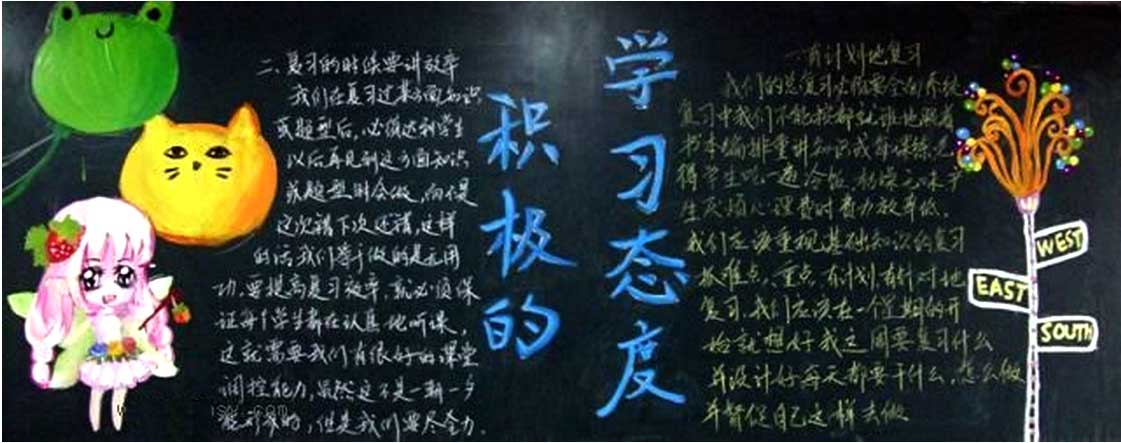 积极的
学习态度
二、复习的时候要讲效率
我们在复习过某方面知识
或题型后,必须达到学生
以后再见到这方面知识
或题型时会做,而不是
这次错下次还错,这样
的话我们等于做的是无用
功,要提高复习效率,就必须保
证每个学生都在认真地听课,
这就需要我们有很好的课堂
调控能力,虽然这不是一朝一夕
能形成的,但是我们要尽全力。
一有计划地复习
我们的总复习必须要全面系统
复习中我们不能按部就班地跟着
书本编排重讲知识或
得学生吃一遍冷饭,
生厌烦心理费时费力效率低。
我们应该重视基础知识的复习
抓难点,重点,有计划,有针对地
复习。我们应该在一个星期的开
始就想好我这周要复习什么
并设计好每天都要干什么,怎么做
并督促自己这样去做
WEST
EAST
SOUTH